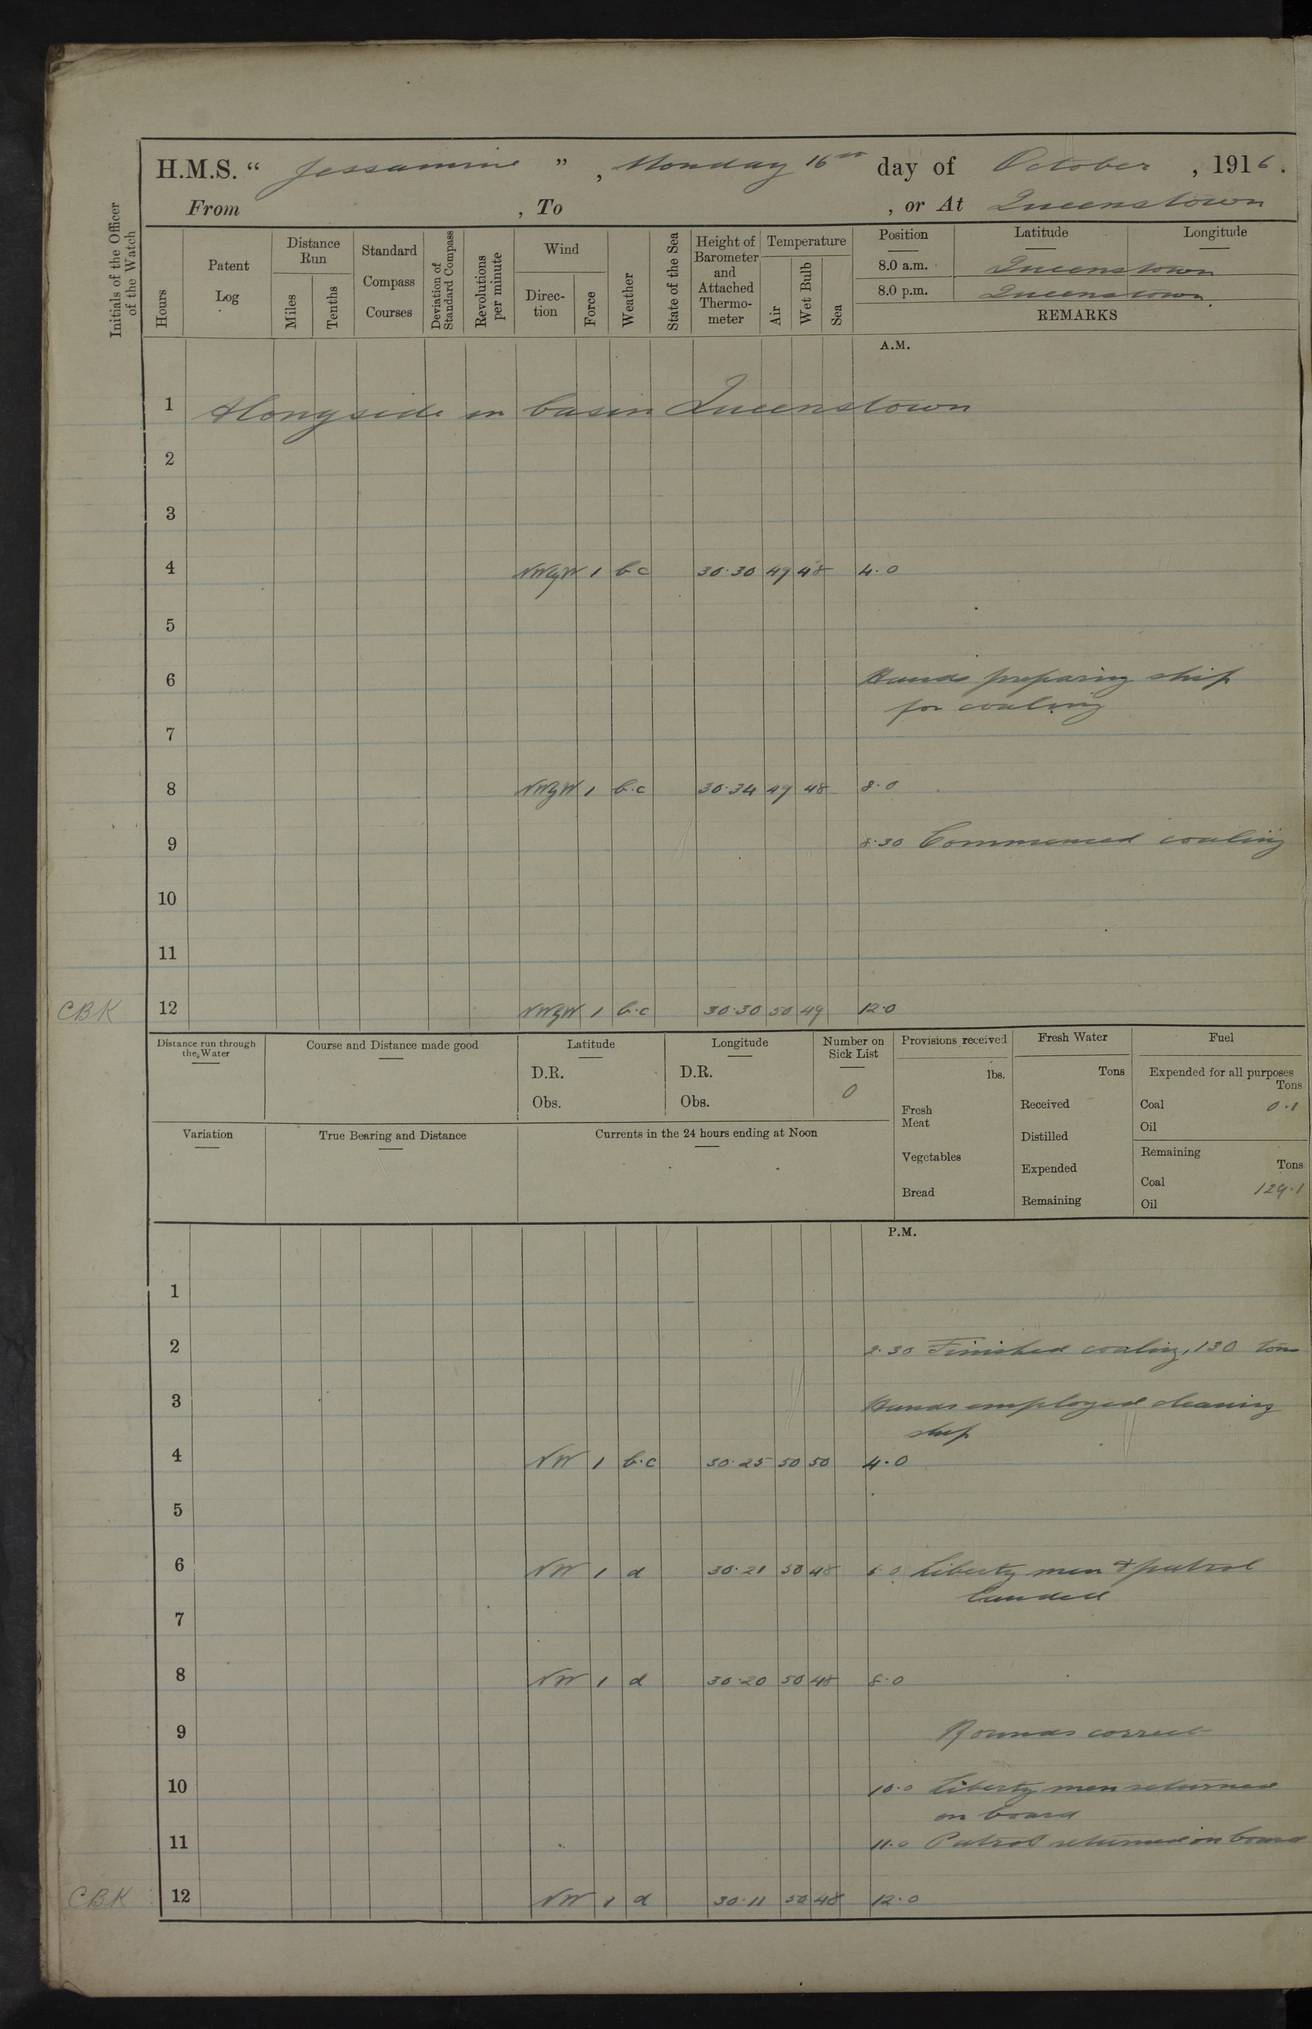 H.M.S. “ Jessamine ” , Monday 16th day of October , 1916.
From , To , or At Queenstown
Initials of the Officer of the Watch
Hours
Patent Log
Distance Run
Miles
Tenths
Standard Compass Courses
Deviation of Standard Compass
Revolutions per minute
Wind
Direc-tion
Force
Weather
State of the Sea
Height of Barometer and Attached Thermo-meter
Temperature
Air
Wet Bulb
Sea
Position Latitude Longitude
8.0 a.m. Queenstown
8.0 p.m. Queenstown
REMARKS
A.M.
1 Alongside in basin Queenstown
2
3
4 NWyW 1 b.c 30.30 49 48 4.0
5
6 Hands preparing ship
for coaling
7
8 NWyW 1 b.c 30.34 49 48 8.0
9 8.30 Commenced coaling
10
11
CBK 12 NWyW 1 b.c 30.30 50 49 12.0
Distance run through the Water
Course and Distance made good
Latitude
D.R.
Obs.
Longitude
D.R.
Obs.
Number on Sick List
0
Variation
True Bearing and Distance
Currents in the 24 hours ending at Noon
Provisions received
lbs.
Fresh Meat
Vegetables
Bread
Fresh Water
Tons
Received
Distilled
Expended
Remaining
Fuel
Expended for all purposes
Tons
Coal 0.1
Oil
Remaining
Tons
Coal 129.1
Oil
P.M.
1
2 2.30 Finished coaling, 130 tons
3 Hands employed cleaning
ship
4 NW 1 b.c 30.25 50 50 4.0
5
6 NW 1 d 30.21 50 48 6.0 Liberty men & patrol
landed
7
8 NW 1 d 30.20 50 48 8.0
9 Rounds correct
10 10.0 Liberty men returned
on board
11 11.0 Patrol returned on board
CBK 12 NW 1 d 30.11 50 48 12.0